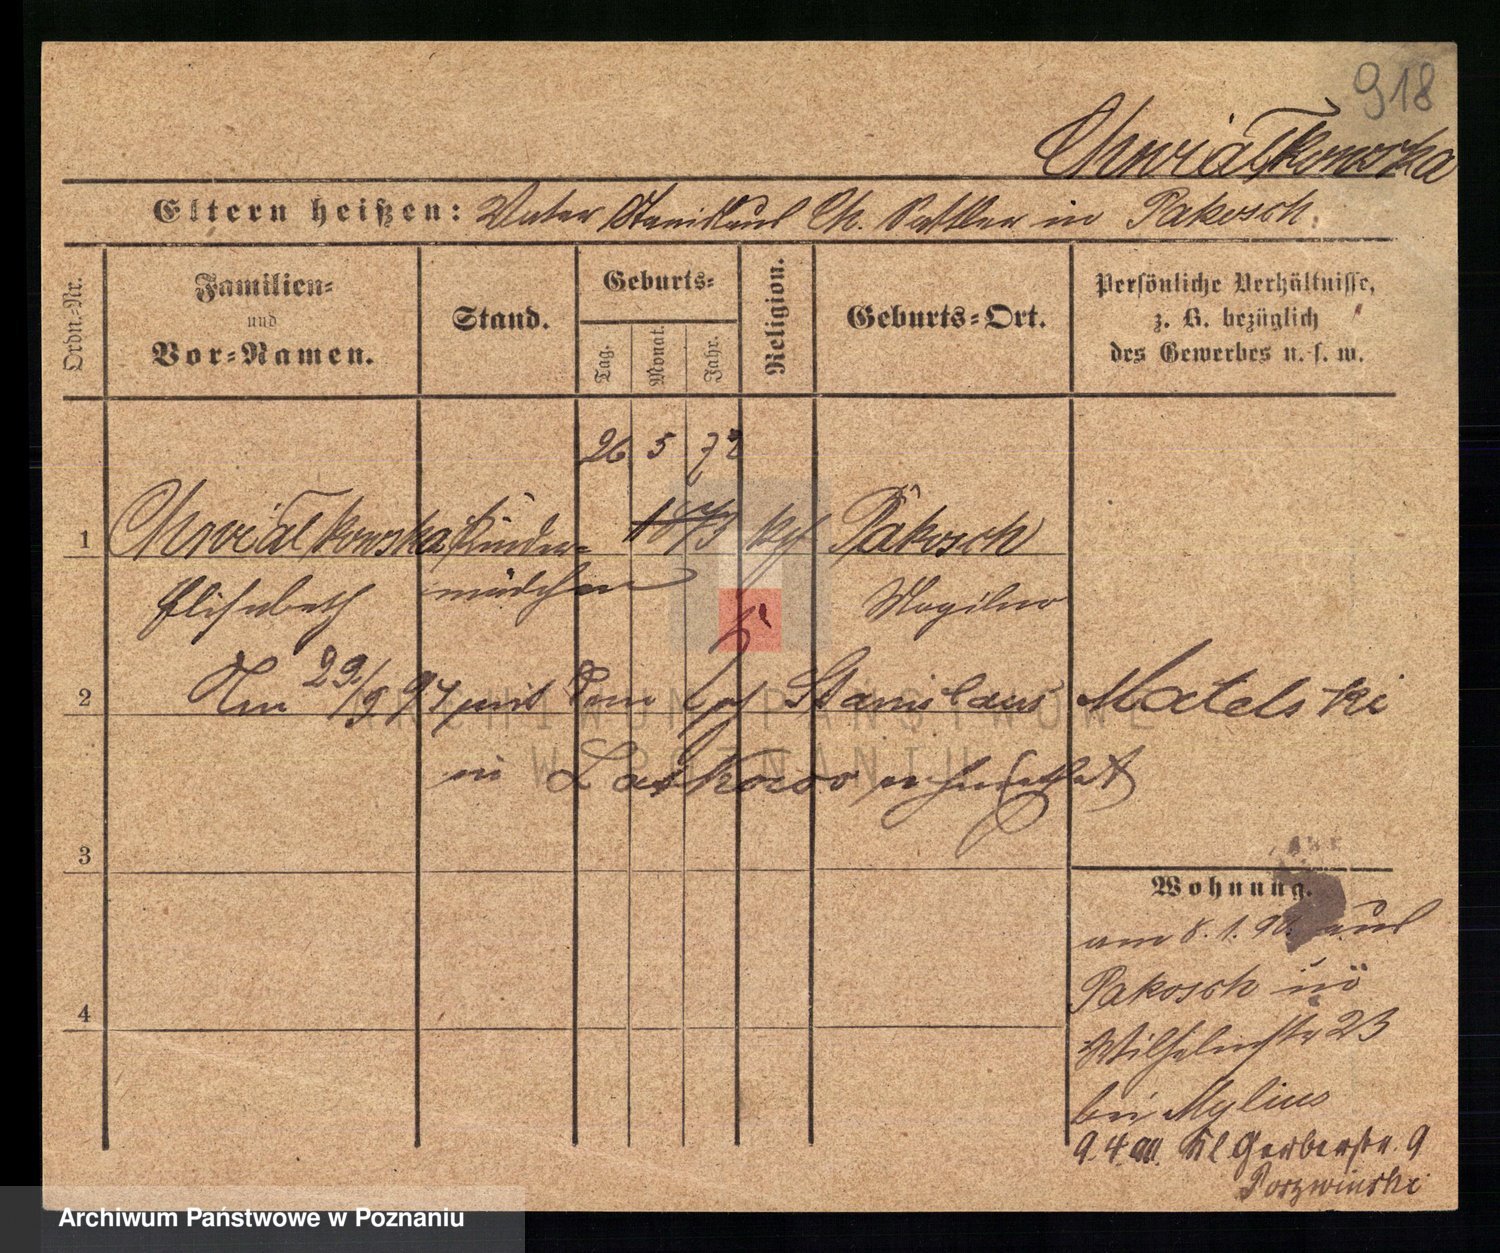 918
Chwiałkowska
Eltern heißen: Vater Stanislaus Ch. Sattler in Pakosch.
Ordn.-Nr.
Familien-
und
Vor-Namen.
Stand.
Geburts-
Tag.
Monat.
Jahr.
Religion.
Geburts-Ort.
Persönliche Verhältnisse,
z. B. bezüglich
des Gewerbes u. s. w.
26 5 72
1 Chwiałkowska Kinder- 1873 kth Pakosch
Elisabeth mädchen Mogilno
2 Am 29/9 94 mit dem Stanislaus Matelski
in Laskowo verheirathet
3
Wohnung.
am 8.1.90. aus
Pakosch in
Wilhelmstr 23
4
bei Mylius
9.4.90. Kl Gerberstr. 9
Porzwinski
ARCHIWUM PAŃSTWOWE
W POZNANIU
Archiwum Państwowe w Poznaniu